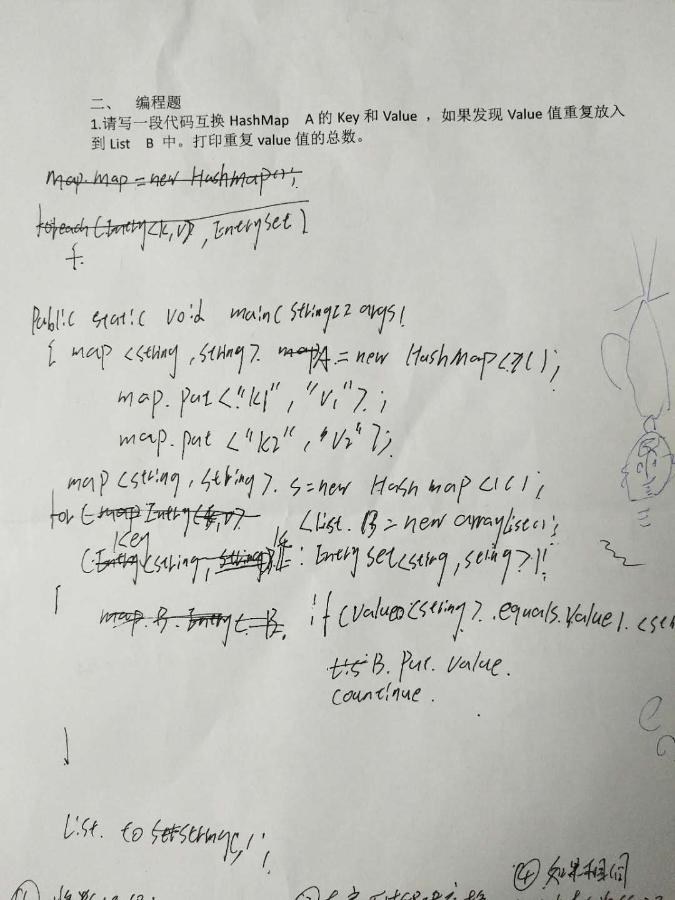 二、 编程题
1.请写一段代码互换 HashMap A 的 Key 和 Value ，如果发现 Value 值重复放入
到 List B 中。打印重复 value 值的总数。
map.map = new Hashmap();
foreach (Entry<k,v>, Entryset)
{
Public static void main( string[] args)
{ map <string, string>. mapA = new HashMap<>();
map. put <"k1", "V1">;
map. put <"k2", "V2">;
map <string, string>. s = new Hash map <>();
for (map Entry(k,v) <List. B = new arraylist();
Key
(Entry<string, string> : Entryset<string, string>)
{
map. B. Entry B. if (value <string>. equals. value).
B. Put. value.
countinue.
}
List. to set string();
④ 如果相同